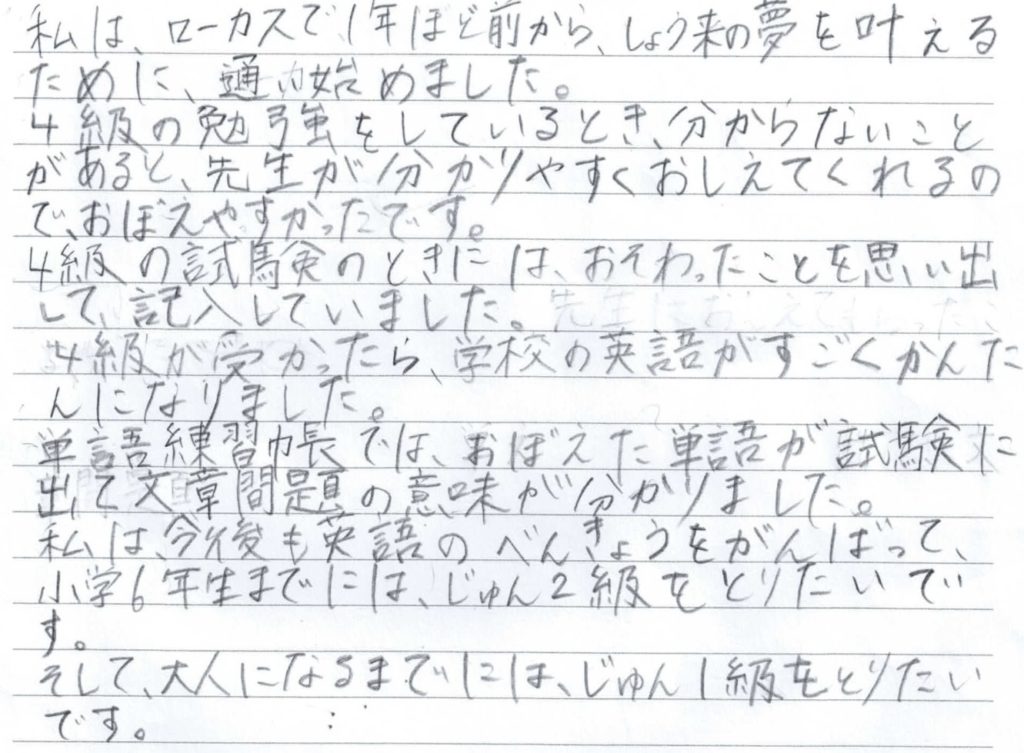 私は、ローカスで、1年ほど前から、しょう来の夢を叶える
ために、通い始めました。
4級の勉強をしているとき、分からないこと
があると、先生が分かりやすくおしえてくれるの
で、おぼえやすかったです。
4級の試験のときには、おそわったことを思い出
して、記入していました。
4級が受かったら、学校の英語がすごくかんた
んになりました。
単語練習帳では、おぼえた単語が試験に
出て文章問題の意味が分かりました。
私は、今後も英語のべんきょうをがんばって、
小学6年生までには、じゅん2級をとりたいで
す。
そして、大人になるまでには、じゅん1級をとりたい
です。